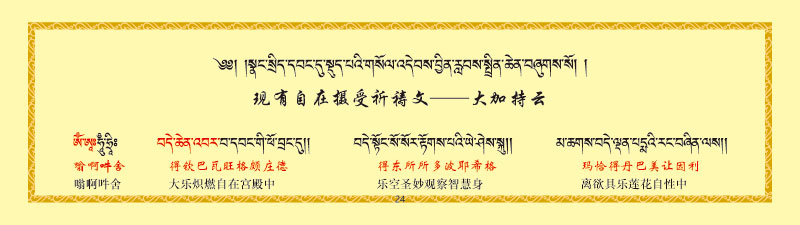 ༄༅། །སྣང་སྲིད་དབང་དུ་སྡུད་པའི་གསོལ་འདེབས་བྱིན་རླབས་སྤྲིན་ཆེན་བཞུགས་སོ། །
现有自在摄受祈祷文——大加持云
ཨོཾ་ཨཱཿཧཱུྃ་ཧྲཱིཿ བདེ་ཆེན་འབར་བ་དབང་གི་ཕོ་བྲང་དུ།། བདེ་སྟོང་སོ་སོར་རྟོགས་པའི་ཡེ་ཤེས་སྐུ།། མ་ཆགས་བདེ་ལྡན་པདྨའི་རང་བཞིན་ལས།།
嗡啊吽舍 得钦巴瓦旺格颇庄德 得东所所多波耶希格 玛恰得丹巴美让因利
嗡啊吽舍 大乐炽燃自在宫殿中 乐空圣妙观察智慧身 离欲具乐莲花自性中
24